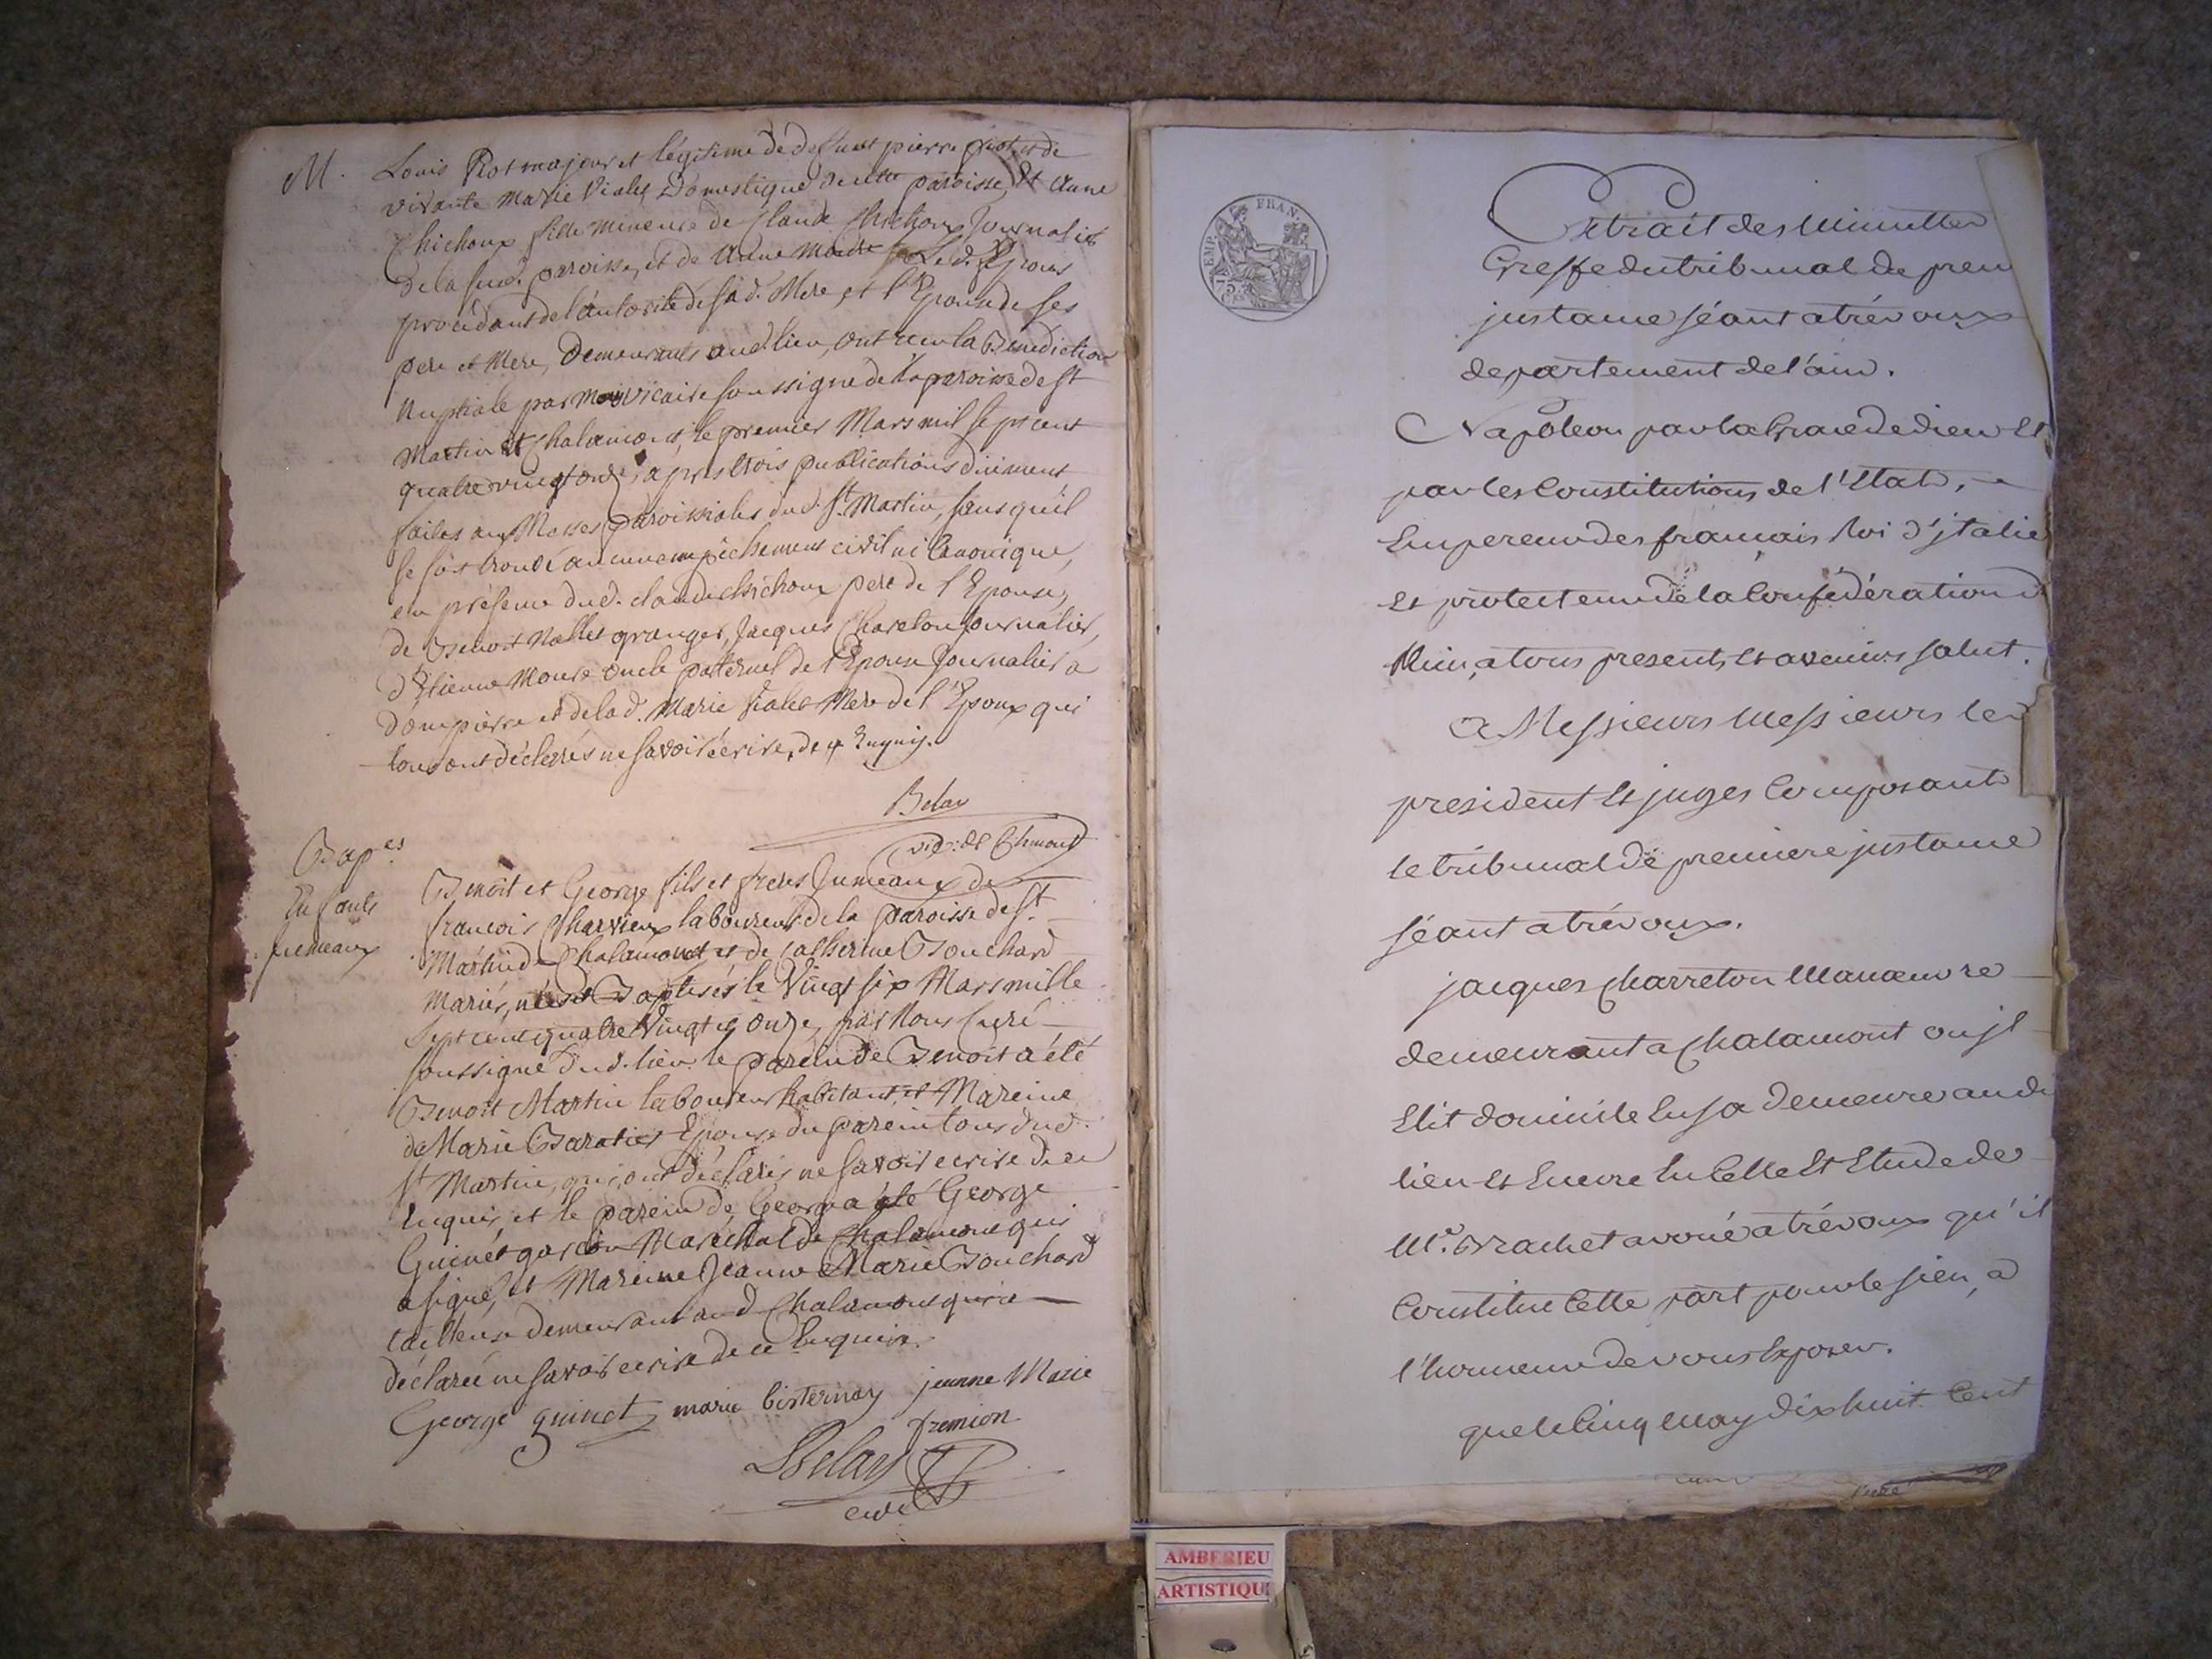 M. Louis Rot majeur et légitime de defunt pierre Rot et de
vivante Marie Vialet Domestique de cette paroisse, et Anne
Chichoux fille mineure de Claude Chichoux Journalier
de la sud. paroisse, et de Anne Le d. Epoux
procedant de l'autorité de sa d. Mere, et l'Epouse de ses
pere et Mere, Demeurants aud. lieu, ont recu la Benediction
Nuptiale par moy vicaire soussigné de la paroisse de St
Martin et Chalamont, le premier Mars mil sept cent
quatre vingt onze, après trois publications duement
faites aux Messes paroissiales dud. St. Martin, sans qu'il
se soit trouvé aucun empêchement civil ni Canonique,
en présence dud. claude chichoux pere de l'Epouse,
de Benoit Nallet granger, Jacques Chareton journalier,
d'Etienne Moure oncle paternel de l'Epouse Journalier a
dompierre et de la d. Marie Vialet Mere de l'Epoux qui
tous ont déclarés ne savoir écrire, de ce Enquis.
Belay
vic: de Chmont
Bap.es
Enfants
jumeaux
Benoit et George fils et freres Jumeaux de
francois Charvieux laboureur de la paroisse de St.
Martin de Chalamont et de Catherine Bouchard
mariés, nés et Baptisés le Vingt six Mars mille
sept cent quatre Vingt et onze, par Nous Curé
soussigné dud. lieu. le parein de Benoit a été
Benoit Martin laboureur habitant, et Mareine
de Marie Baratier Epouse du parein tous dud.
St Martin, qui ont déclarés ne savoir ecrire de ce
enquis, et le parein de George a été George
Guinet garçon Maréchal de Chalamont qui
a signé, et Mareine Jeanne Marie Bouchard
tailleuse demeurant aud Chalamont qui a
déclarée ne savoir ecrire de ce enquise.
George guinet marie bisternay jeanne Marie
fremion
Belay
curé
EMP. FRAN.
75 c
Extrait des Minuttes
Greffe du tribunal de prem
justance séant a trévoux
departement de l'ain.
Napôleon par la Grace de dieu et
par les Constitutions de l'Etat,
Empereur des français Roi d'jtalie
et protecteur de la Confédération d
Rhin, a tous presents et avenirs salut.
A Messieurs Messieurs les
president et juges Composants
le tribunal de premiere justance
séant a trévoux.
jacques Charreton Manœuvre
demeurant a Chalamont ou jl
Elit domicile en sa demeure aud
lieu et encore en Celle et Etude de
Me. Brachet avoué a trévoux qu'il
Constitue Cette part pour le sien, a
l'honneur de vous Exposer.
que le Cinq may dix huit Cent
AMBERIEU
ARTISTIQUE